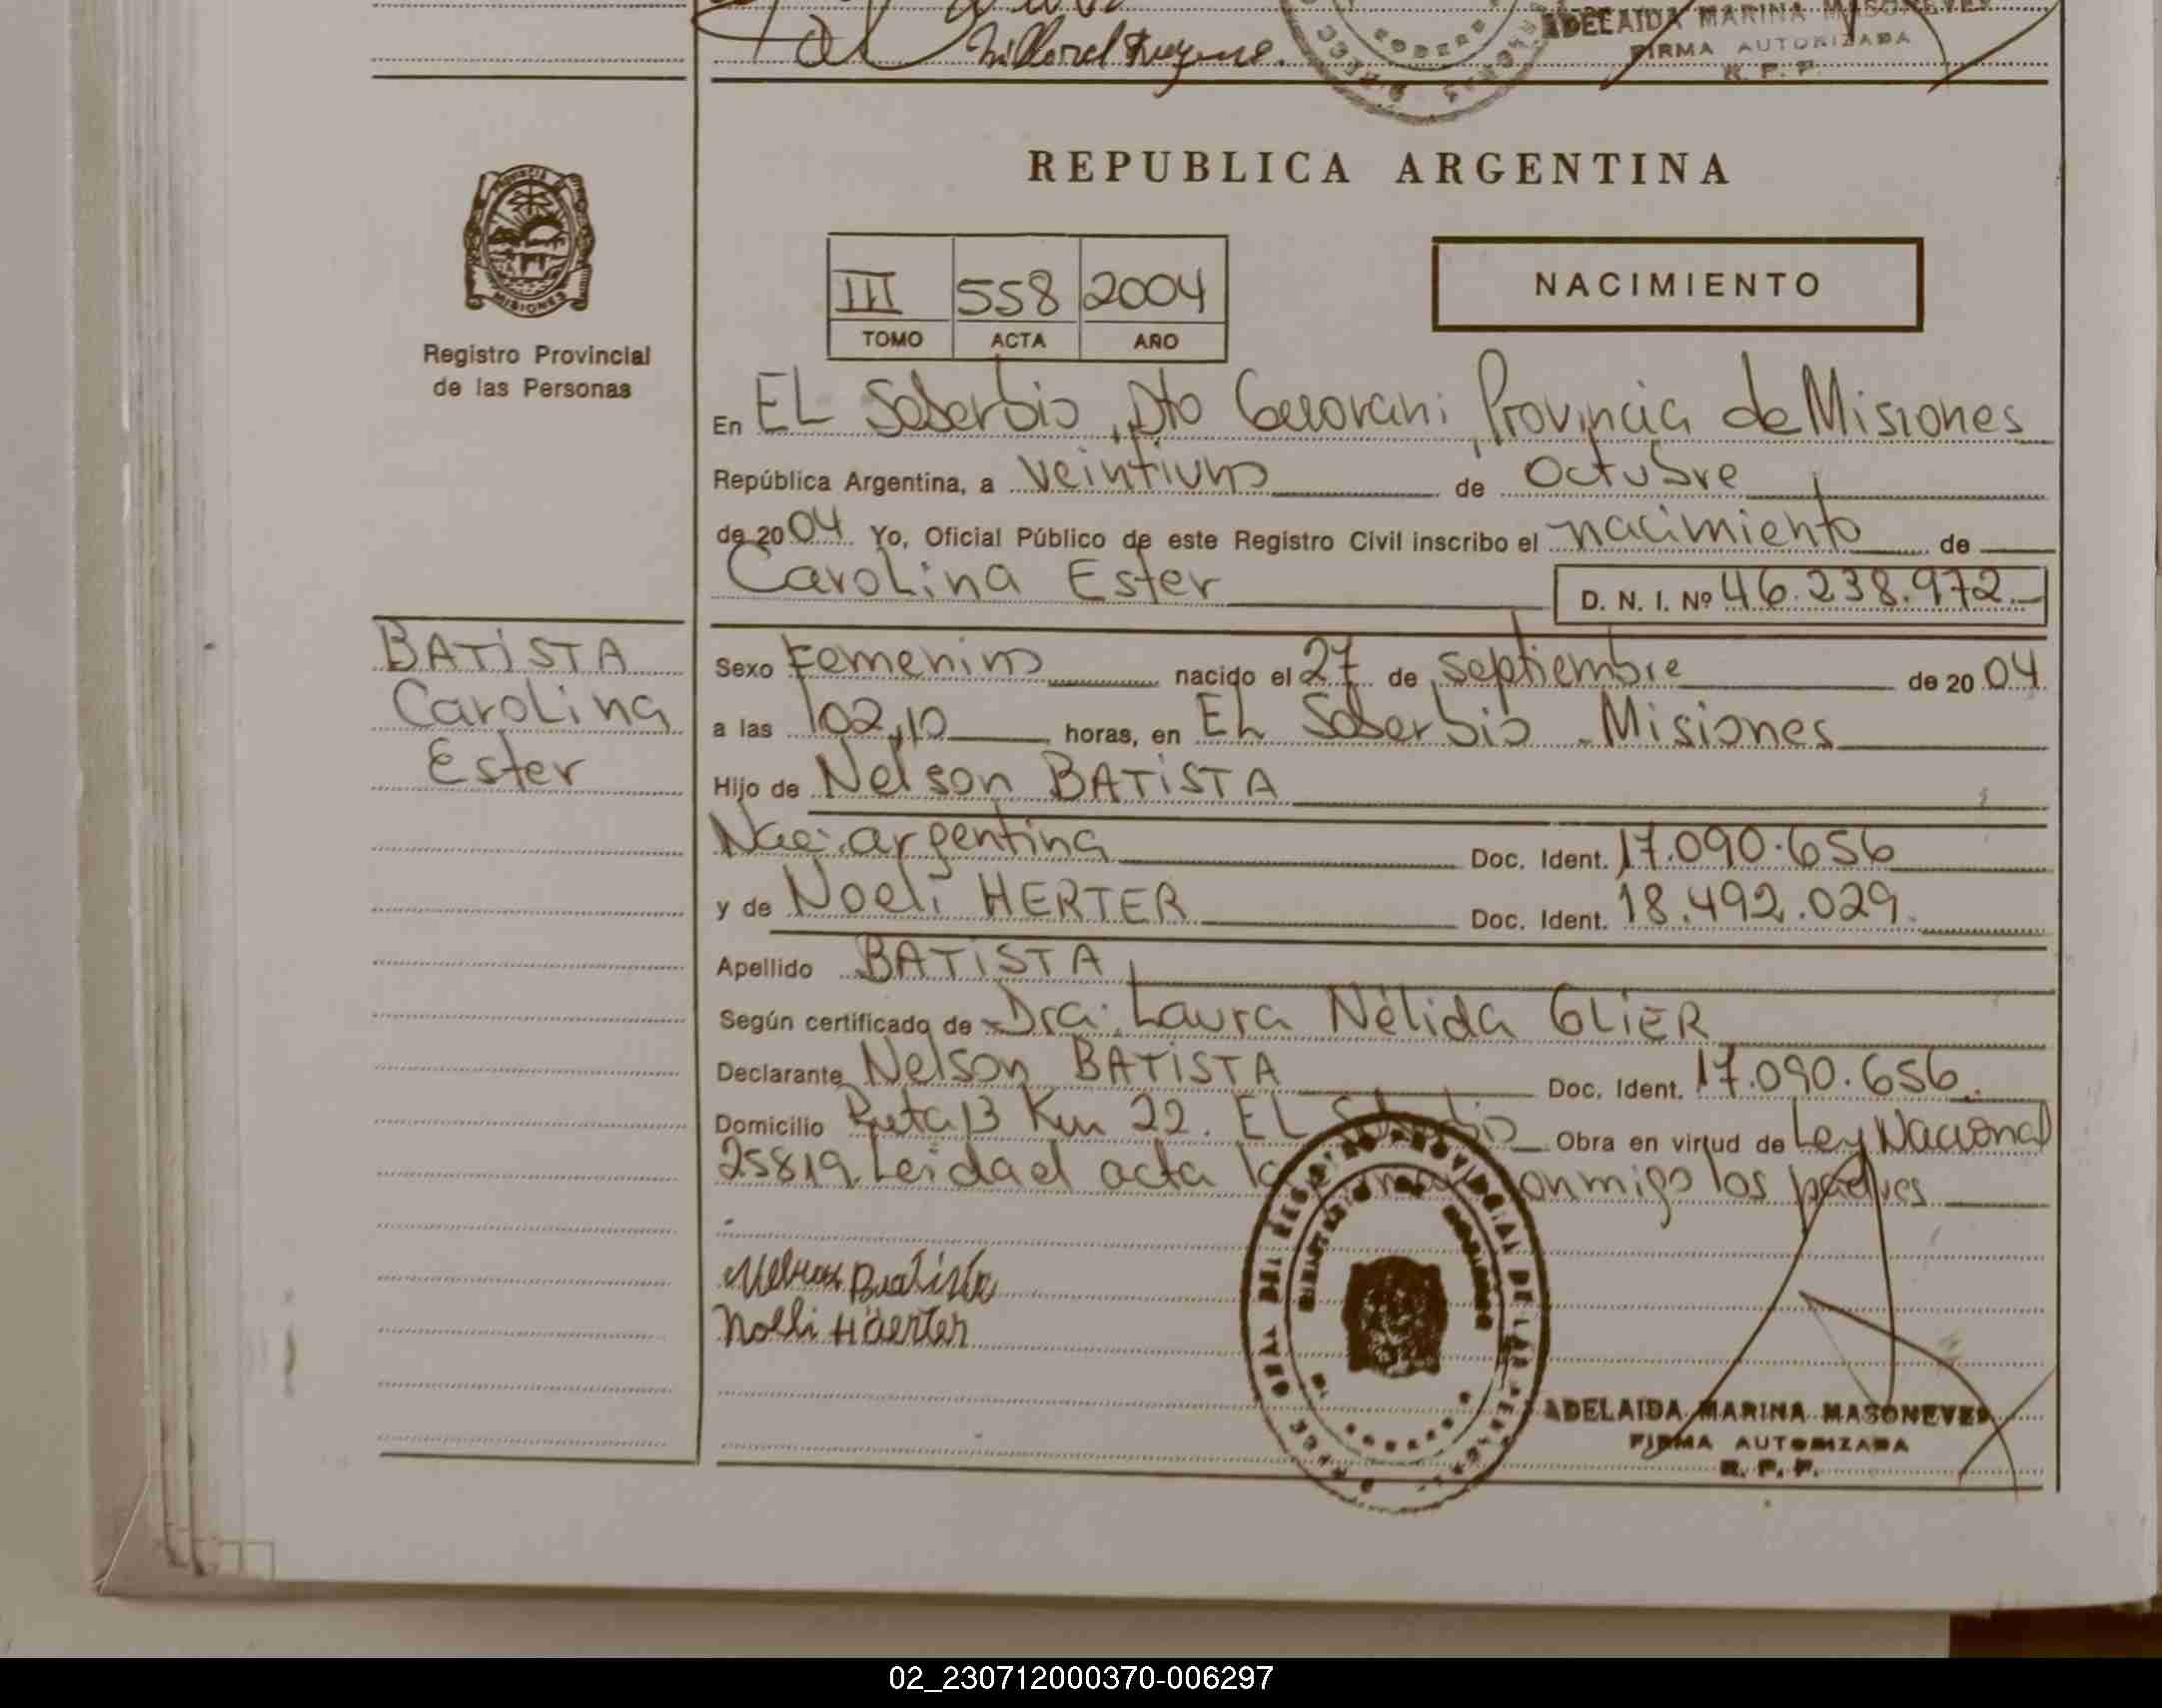 Millorel
ADELAIDA MARINA MASONEVES
FIRMA AUTORIZADA
R. P. P.
REPUBLICA ARGENTINA
III 558 2004
TOMO ACTA AÑO
NACIMIENTO
PROVINCIA DE
MISIONES
Registro Provincial
de las Personas
En EL Soberbio, Dto Guarani, Provincia de Misiones
República Argentina, a veintiuno de Octubre
de 2004 Yo, Oficial Público de este Registro Civil inscribo el nacimiento de
Carolina Ester D. N. I. Nº 46.238.972.-
BATISTA
Carolina
Ester
Sexo Femenino nacido el 27 de septiembre de 2004
a las 02,10 horas, en EL Soberbio - Misiones
Hijo de Nelson BATISTA
Nac. argentina Doc. Ident. 17.090.656
y de Noeli HERTER Doc. Ident. 18.492.029.
Apellido BATISTA
Según certificado de Dra. Laura Nélida GLIER
Declarante Nelson BATISTA Doc. Ident. 17.090.656.
Domicilio Ruta 13 Km 22. EL Soberbio Obra en virtud de Ley Nacional
25819. Leida el acta la firman conmigo los padres
Nelson Batista
Noeli Häerter
ADELAIDA MARINA MASONEVES
FIRMA AUTORIZADA
R. P. P.
02_230712000370-006297